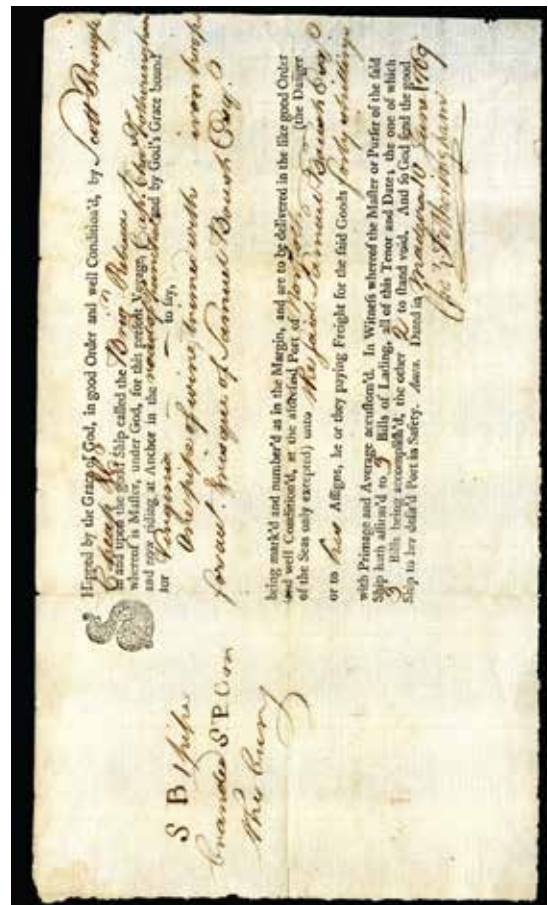 SHipped by the Grace of God, in good Order and well Condition'd, by Scott Pringle
Cheap & Co
in and upon the good Ship called the Brig Rebecca
whereof is Master, under God, for this present Voyage, Capt. Chs. Fotheringham
and now riding at Anchor in the road of Funchal and by God's Grace bound
for Virginia to say,
One pipe of wine, trimed with iron hoops
for acct. & risque of Samuel Boush Esqr.
S B 1 pipe
branded S P. C on
the bung
being mark'd and number'd as in the Margin, and are to be delivered in the like good Order
and well Condition'd, at the aforesaid Port of (the Danger
of the Seas only excepted) unto the said Samuel Boush Esqr.
or to his Assigns, he or they paying Freight for the said Goods forty shillings
with Primage and Average accustom'd. In Witness whereof the Master or Purser of the said
Ship hath affirm'd to 3 Bills of Lading, all of this Tenor and Date; the one of which
3 Bills being accomplish'd, the other 2 to stand void. And so God send the good
Ship to her desir'd Port in Safety. Amen. Dated in Madeira June 1769
Chs. Fotheringham